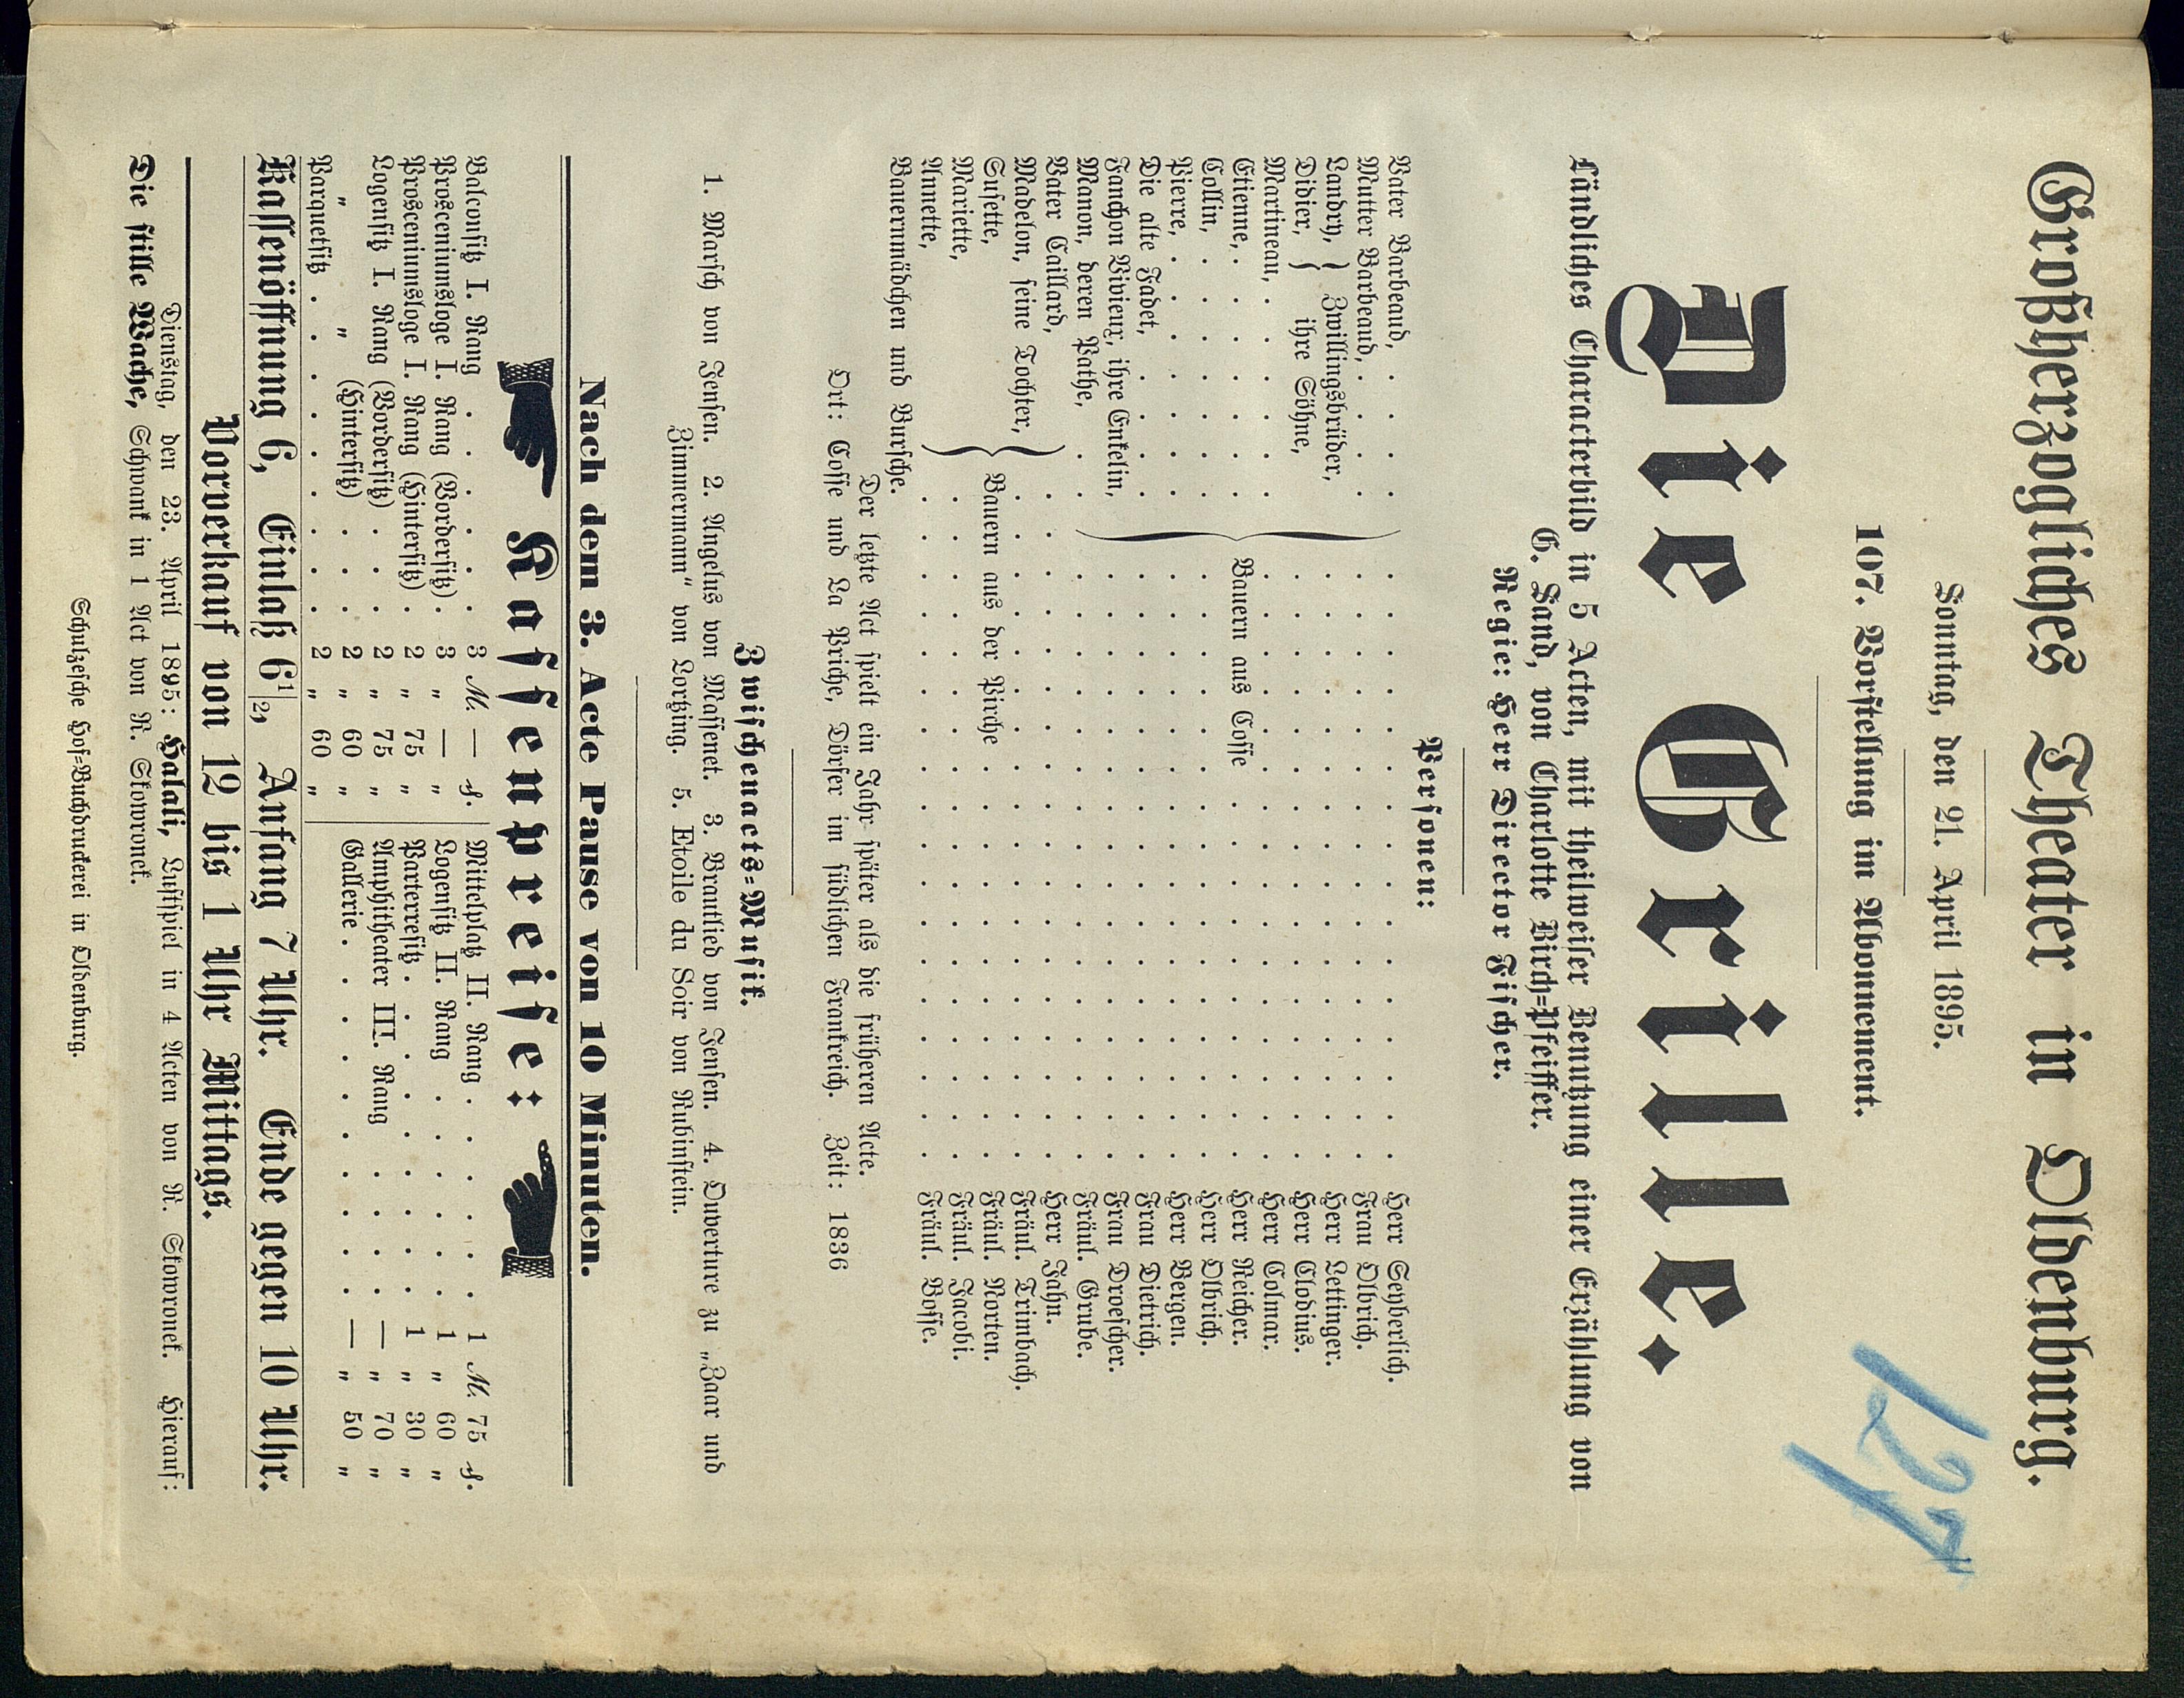 Großherzogliches Theater in Oldenburg.
Sonntag, den 21. April 1895.
107. Vorstellung im Abonnement.
127
Die Grille.
Ländliches Characterbild in 5 Acten, mit theilweiser Benutzung einer Erzählung von
G. Sand, von Charlotte Birch=Pfeiffer.
Regie: Herr Director Fischer.
Personen:
Vater Barbeaud, . . . Herr Seyberlich.
Mutter Barbeaud, . . . Frau Olbrich.
Landry, } Zwillingsbrüder, . . . Herr Lettinger.
Didier, } ihre Söhne, . . . Herr Clodius.
Martineau, . . . Herr Colmar.
Etienne, . . . Bauern aus Cosse . . . Herr Reicher.
Collin, . . . Herr Olbrich.
Pierre, . . . Herr Bergen.
Die alte Fadet, . . . Frau Dietrich.
Fanchon Vivieux, ihre Enkelin, . . . Frau Droescher.
Manon, deren Pathe, . . . Fräul. Grube.
Vater Caillard, . . . Herr Jahn.
Madelon, seine Tochter, . . . Fräul. Trimbach.
Susette, } Bauern aus der Pirche . . . Fräul. Norten.
Mariette, . . . Fräul. Jacobi.
Annette, . . . Fräul. Bosse.
Bauernmädchen und Bursche.
Der letzte Act spielt ein Jahr später als die früheren Acte.
Ort: Cosse und La Priche, Dörfer im südlichen Frankreich. Zeit: 1836
Zwischenacts=Musik.
1. Marsch von Jensen. 2. Angelus von Massenet. 3. Brautlied von Jensen. 4. Ouverture zu „Zaar und
Zimmermann“ von Lortzing. 5. Etoile du Soir von Rubinstein.
Nach dem 3. Acte Pause von 10 Minuten.
Kassenpreise:
Balconsitz I. Rang . . . 3 M. — ₰.
Prosceniumsloge I. Rang (Vordersitz) . 3 „ — „
Prosceniumsloge I. Rang (Hintersitz) . 2 „ 75 „
Logensitz I. Rang (Vordersitz) . . . 2 „ 75 „
„ „ (Hintersitz) . . . 2 „ 60 „
Parquetsitz . . . 2 „ 60 „
Mittelplatz II. Rang . . . 1 M. 75 ₰.
Logensitz II. Rang . . . 1 „ 60 „
Parterresitz . . . 1 „ 30 „
Amphitheater III. Rang . . . — „ 70 „
Gallerie . . . — „ 50 „
Kassenöffnung 6, Einlaß 6½, Anfang 7 Uhr. Ende gegen 10 Uhr.
Vorverkauf von 12 bis 1 Uhr Mittags.
Dienstag, den 23. April 1895: Halali, Lustspiel in 4 Acten von R. Skowronek. Hierauf:
Die stille Wache, Schwank in 1 Act von R. Skowronek.
Schulzesche Hof=Buchdruckerei in Oldenburg.